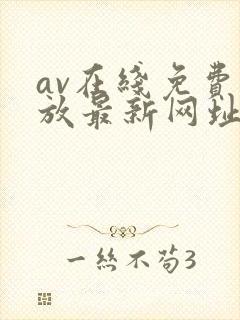 av在綫免費
放最新网址
一絲不苟3